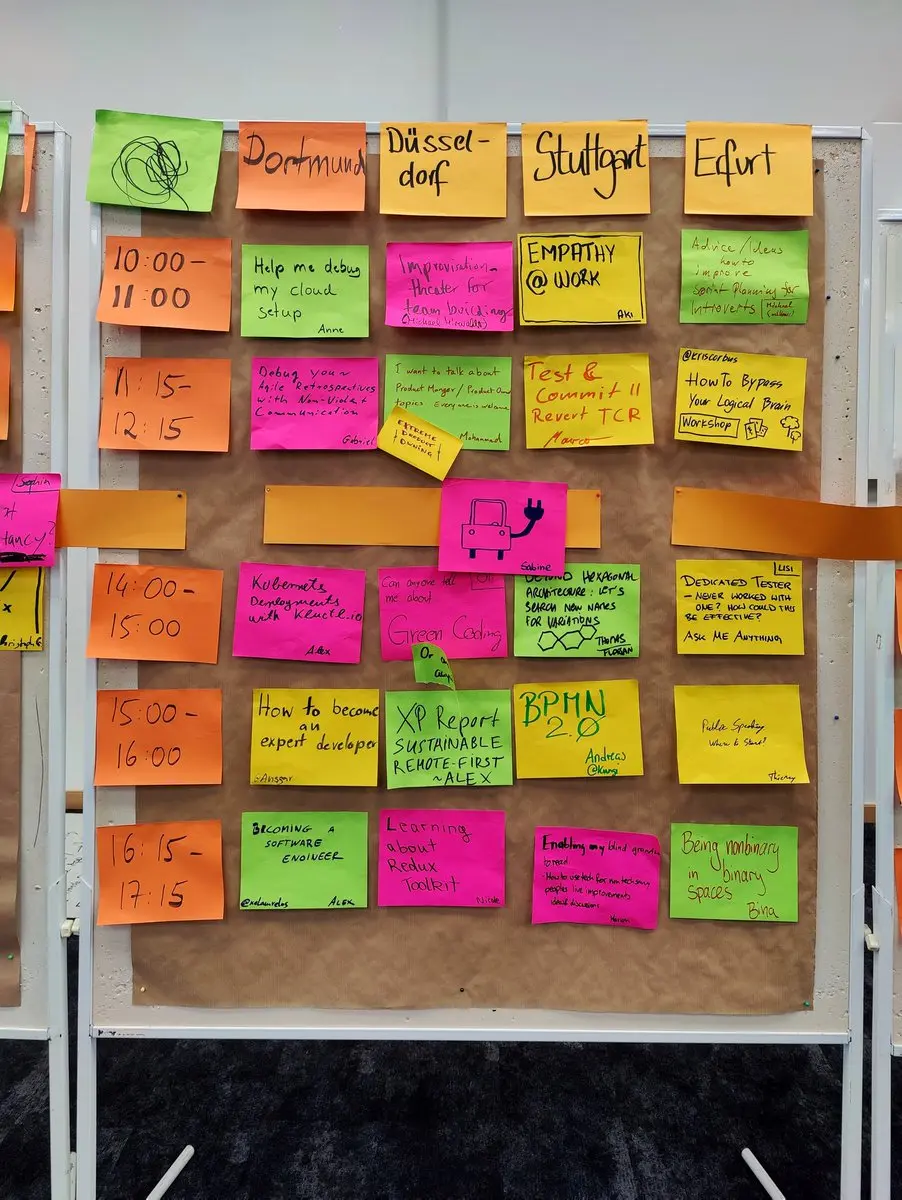 Dortmund
Düssel-
dorf
Stuttgart
Erfurt
10:00-
11:00
Help me debug
my cloud
setup
Anne
Improvisation-
theater for
team building
EMPATHY
@ WORK
AKI
Advice/Ideas
how to
improve
Sprint Planning for
Introverts
Michael
11:15-
12:15
Debug your
Agile Retrospectives
with Non-Violent
Communication
Gabriel
I want to talk about
Product Manger / Product Own
topics Everyone is welcome
Mohammad
EXTREME
PRODUCT
OWNING
Test &
Commit ||
Revert TCR
Marco
@kriscorbus
HowTo Bypass
Your Logical Brain
Workshop
Sophia
Sabine
14:00-
15:00
Kubernetes
Deployments
with Kluctl.io
Alex
Can anyone tell
me about
Green Coding
Or a
BEYOND HEXAGONAL
ARCHITECTURE: LET'S
SEARCH NEW NAMES
FOR VARIATIONS
THOMAS
FLORIAN
LISI
DEDICATED TESTER
- NEVER WORKED WITH
ONE? HOW COULD THIS
BE EFFECTIVE?
ASK ME ANYTHING
15:00-
16:00
How to become
an
expert developer
XP Report
SUSTAINABLE
REMOTE-FIRST
~ALEX
BPMN
2.0
Andreas
Public Speaking
Where to Start?
Thierry
16:15-
17:15
BECOMING A
SOFTWARE
ENGINEER
ALEX
Learning
about
Redux
Toolkit
Nicole
Enabling my blind
to read
- How to use tech for non tech savy
peoples live improvements
Being nonbinary
in binary
spaces
Bina